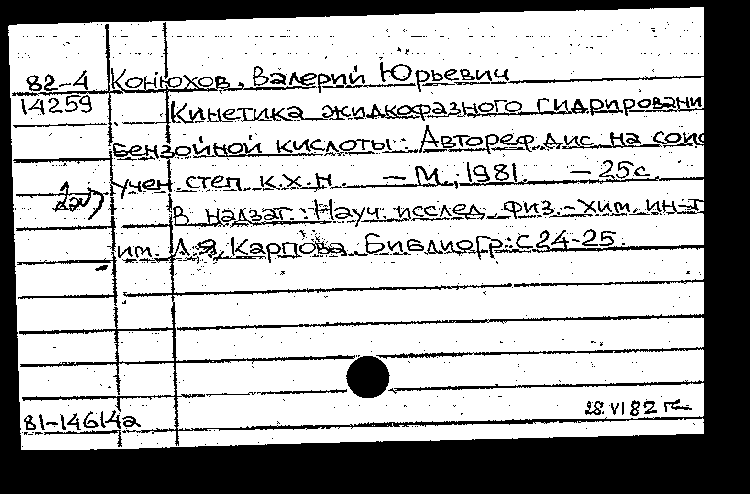 82-4 Конюхов, Валерий Юрьевич
14259 Кинетика жидкофазного гидрировани
бензойной кислоты: Автореф. дис. на соис
учен. степ. к.х.н. – М., 1981. – 25с.
В надзаг.: Науч. исслед. физ.-хим. ин-т
им. Л.Я. Карпова. Библиогр.: с 24-25.
81-14614а 28.VI 82